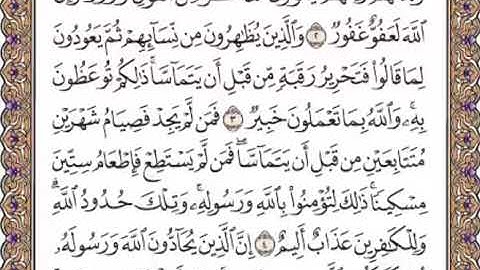 ٱللَّهَ لَعَفُوٌّ غَفُورٌ ٢ وَٱلَّذِينَ يُظَٰهِرُونَ مِن نِّسَآئِهِمْ ثُمَّ يَعُودُونَ
لِمَا قَالُوا۟ فَتَحْرِيرُ رَقَبَةٍ مِّن قَبْلِ أَن يَتَمَآسَّا ۚ ذَٰلِكُمْ تُوعَظُونَ
بِهِۦ ۚ وَٱللَّهُ بِمَا تَعْمَلُونَ خَبِيرٌ ٣ فَمَن لَّمْ يَجِدْ فَصِيَامُ شَهْرَيْنِ
مُتَتَابِعَيْنِ مِن قَبْلِ أَن يَتَمَآسَّا ۖ فَمَن لَّمْ يَسْتَطِعْ فَإِطْعَامُ سِتِّينَ
مِسْكِينًا ۚ ذَٰلِكَ لِتُؤْمِنُوا۟ بِٱللَّهِ وَرَسُولِهِۦ ۚ وَتِلْكَ حُدُودُ ٱللَّهِ ۗ
وَلِلْكَٰفِرِينَ عَذَابٌ أَلِيمٌ ٤ إِنَّ ٱلَّذِينَ يُحَآدُّونَ ٱللَّهَ وَرَسُولَهُۥ